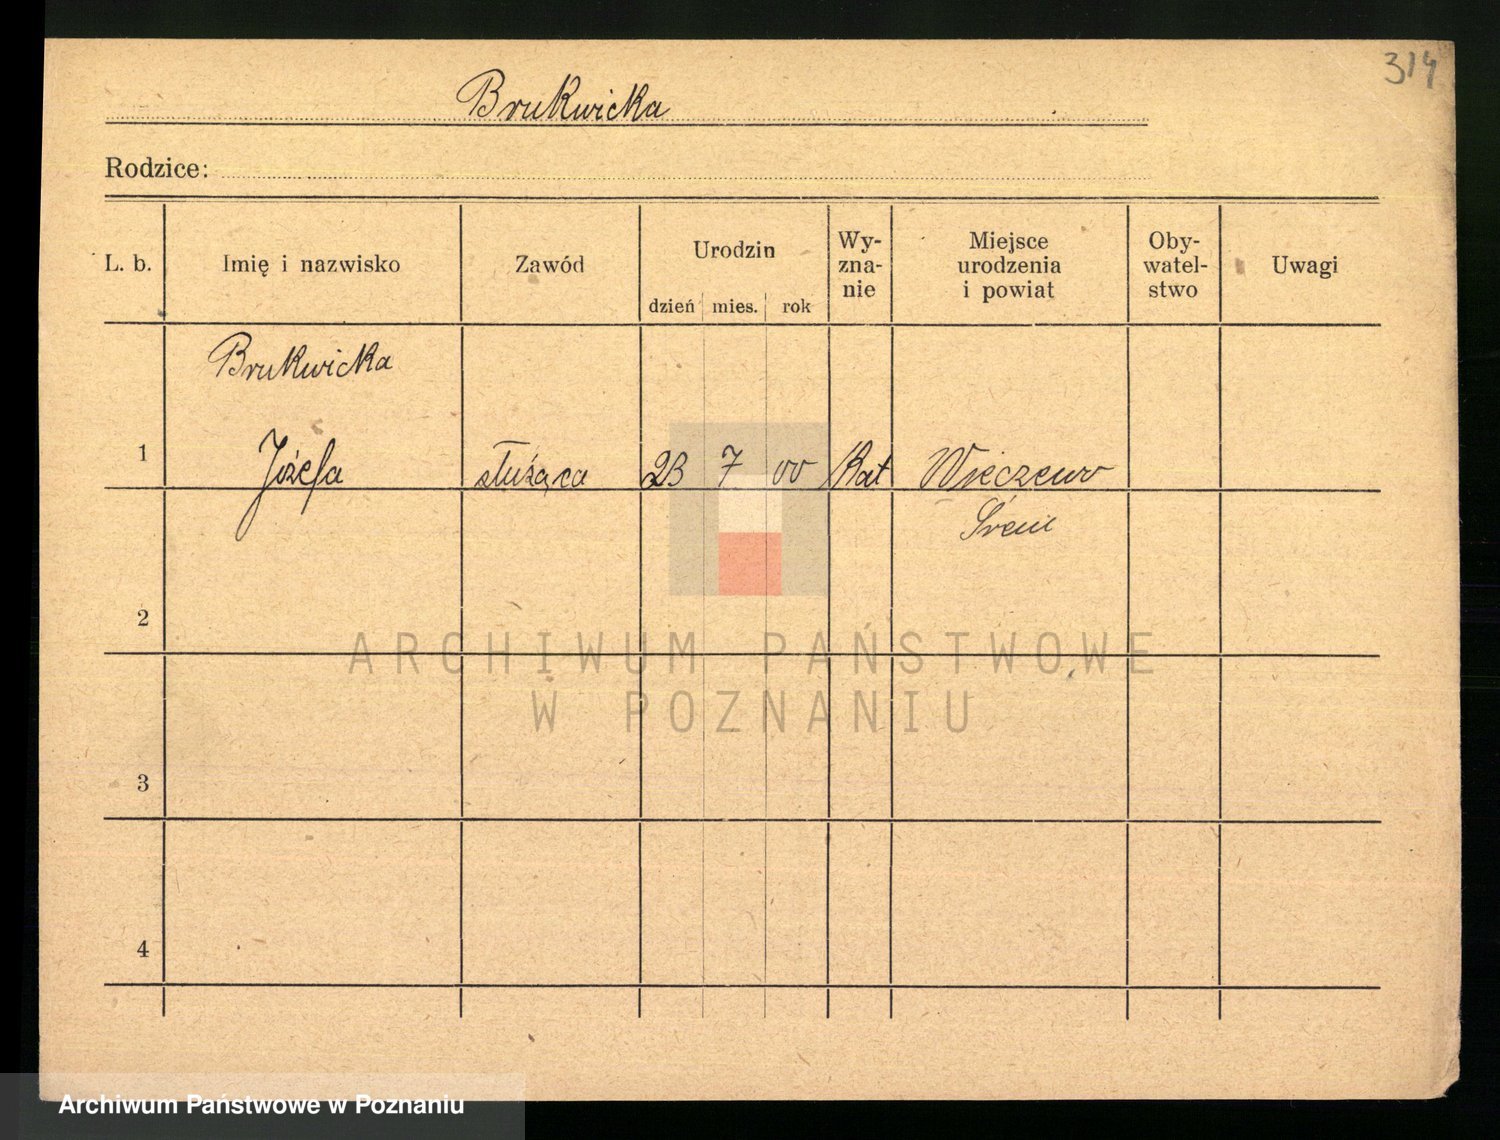 314
Brukwicka
Rodzice:
L. b.
Imię i nazwisko
Zawód
Urodzin
dzień mies. rok
Wy-
zna-
nie
Miejsce
urodzenia
i powiat
Oby-
watel-
stwo
Uwagi
Brukwicka
1 Józefa służąca 23 7 00 Kat Wieczewo
Śrem
2
3
4
ARCHIWUM PAŃSTWOWE
W POZNANIU
Archiwum Państwowe w Poznaniu